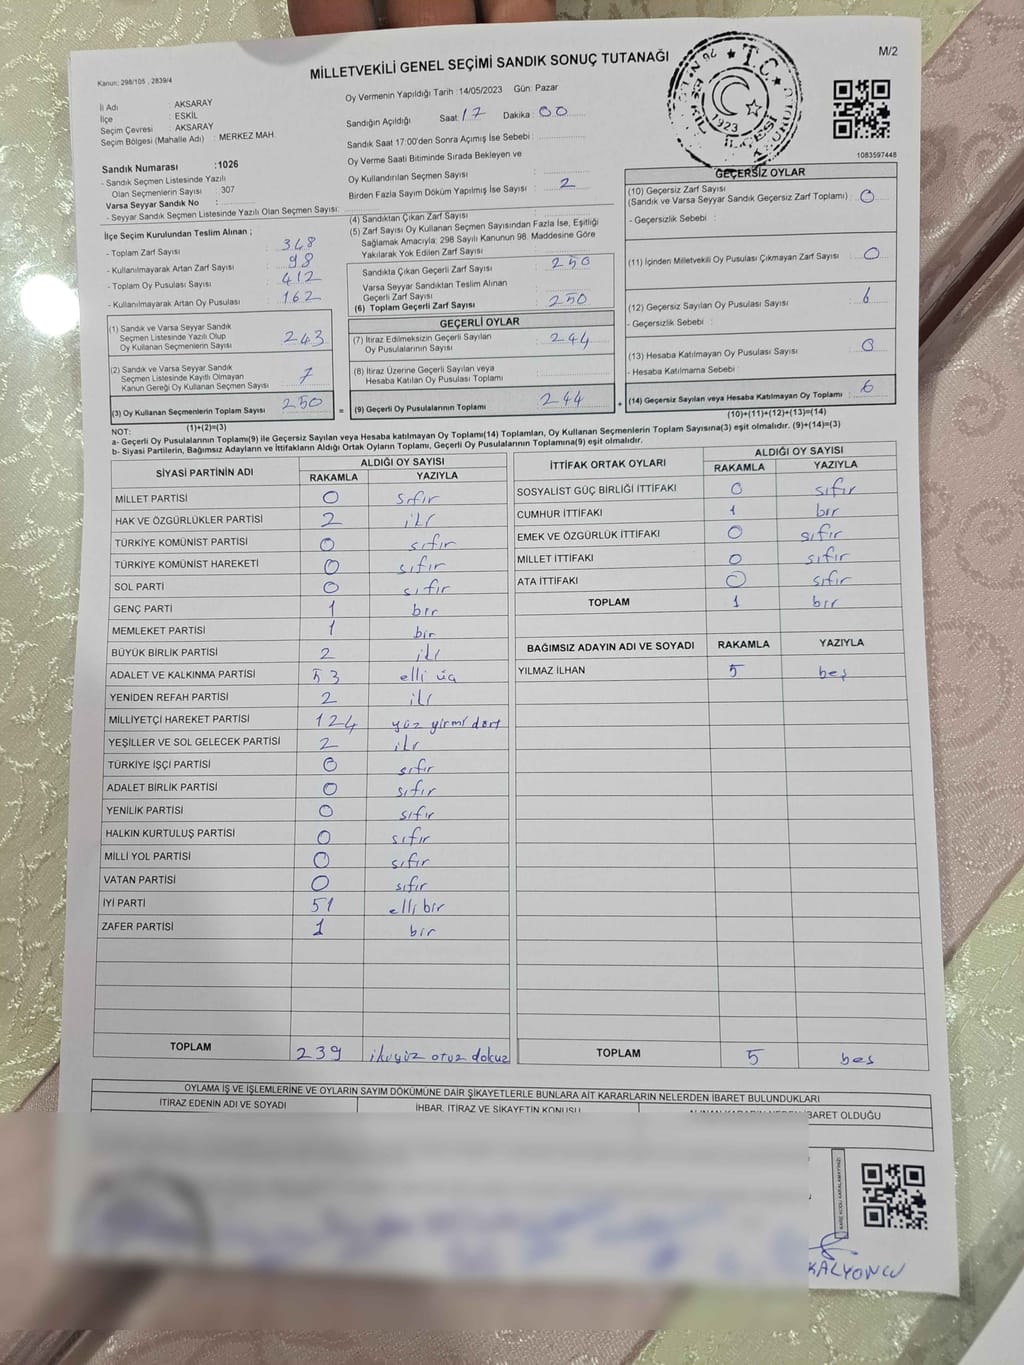 Kanun: 298/105 , 2839/4
MİLLETVEKİLİ GENEL SEÇİMİ SANDIK SONUÇ TUTANAĞI
M/2
İl Adı : AKSARAY
İlçe : ESKİL
Seçim Çevresi : AKSARAY
Seçim Bölgesi (Mahalle Adı) : MERKEZ MAH.
Sandık Numarası :1026
- Sandık Seçmen Listesinde Yazılı
Olan Seçmenlerin Sayısı : 307
Varsa Seyyar Sandık No :
- Seyyar Sandık Seçmen Listesinde Yazılı Olan Seçmen Sayısı:
Oy Vermenin Yapıldığı Tarih : 14/05/2023 Gün: Pazar
Sandığın Açıldığı Saat: 17 Dakika : 00
Sandık Saat 17:00'den Sonra Açımış İse Sebebi :
Oy Verme Saati Bitiminde Sırada Bekleyen ve
Oy Kullandırılan Seçmen Sayısı :
Birden Fazla Sayım Döküm Yapılmış İse Sayısı : 2
T.C.
1923
1083597448
İlçe Seçim Kurulundan Teslim Alınan ;
- Toplam Zarf Sayısı : 348
- Kullanılmayarak Artan Zarf Sayısı : 98
- Toplam Oy Pusulası : 412
- Kullanılmayarak Artan Oy Pusulası : 162
(1) Sandık ve Varsa Seyyar Sandık
Seçmen Listesinde Yazılı Olup
Oy Kullanan Seçmenlerin Sayısı : 243
(2) Sandık ve Varsa Seyyar Sandık
Seçmen Listesinde Kayıtlı Olmayan
Kanun Gereği Oy Kullanan Seçmen Sayısı : 7
(3) Oy Kullanan Seçmenlerin Toplam Sayısı : 250
(1)+(2)=(3)
(4) Sandıktan Çıkan Zarf Sayısı :
(5) Zarf Sayısı Oy Kullanan Seçmen Sayısından Fazla İse, Eşitliği
Sağlamak Amacıyla; 298 Sayılı Kanunun 98. Maddesine Göre
Yakılarak Yok Edilen Zarf Sayısı :
Sandıkta Çıkan Geçerli Zarf Sayısı : 250
Varsa Seyyar Sandıktan Teslim Alınan
Geçerli Zarf Sayısı :
(6) Toplam Geçerli Zarf Sayısı : 250
GEÇERLİ OYLAR
(7) İtiraz Edilmeksizin Geçerli Sayılan
Oy Pusulalarının Sayısı : 244
(8) İtiraz Üzerine Geçerli Sayılan veya
Hesaba Katılan Oy Pusulası Toplamı :
= (9) Geçerli Oy Pusulalarının Toplamı : 244 +
GEÇERSİZ OYLAR
(10) Geçersiz Zarf Sayısı
(Sandık ve Varsa Seyyar Sandık Geçersiz Zarf Toplamı) : 0
- Geçersizlik Sebebi :
(11) İçinden Milletvekili Oy Pusulası Çıkmayan Zarf Sayısı : 0
(12) Geçersiz Sayılan Oy Pusulası Sayısı : 6
- Geçersizlik Sebebi :
(13) Hesaba Katılmayan Oy Pusulası Sayısı : 0
- Hesaba Katılmama Sebebi :
(14) Geçersiz Sayılan veya Hesaba Katılmayan Oy Toplamı : 6
(10)+(11)+(12)+(13)=(14)
NOT:
a- Geçerli Oy Pusulalarının Toplamı(9) ile Geçersiz Sayılan veya Hesaba katılmayan Oy Toplamı(14) Toplamları, Oy Kullanan Seçmenlerin Toplam Sayısına(3) eşit olmalıdır. (9)+(14)=(3)
b- Siyasi Partilerin, Bağımsız Adayların ve İttifakların Aldığı Ortak Oyların Toplamı, Geçerli Oy Pusulalarının Toplamına(9) eşit olmalıdır.
SİYASİ PARTİNİN ADI ALDIĞI OY SAYISI
RAKAMLA YAZIYLA
MİLLET PARTİSİ 0 sıfır
HAK VE ÖZGÜRLÜKLER PARTİSİ 2 iki
TÜRKİYE KOMÜNİST PARTİSİ 0 sıfır
TÜRKİYE KOMÜNİST HAREKETİ 0 sıfır
SOL PARTİ 0 sıfır
GENÇ PARTİ 1 bir
MEMLEKET PARTİSİ 1 bir
BÜYÜK BİRLİK PARTİSİ 2 iki
ADALET VE KALKINMA PARTİSİ 53 elli üç
YENİDEN REFAH PARTİSİ 2 iki
MİLLİYETÇİ HAREKET PARTİSİ 124 yüz yirmi dört
YEŞİLLER VE SOL GELECEK PARTİSİ 2 iki
TÜRKİYE İŞÇİ PARTİSİ 0 sıfır
ADALET BİRLİK PARTİSİ 0 sıfır
YENİLİK PARTİSİ 0 sıfır
HALKIN KURTULUŞ PARTİSİ 0 sıfır
MİLLİ YOL PARTİSİ 0 sıfır
VATAN PARTİSİ 0 sıfır
İYİ PARTİ 51 elli bir
ZAFER PARTİSİ 1 bir
TOPLAM 239 ikiyüz otuz dokuz
İTTİFAK ORTAK OYLARI ALDIĞI OY SAYISI
RAKAMLA YAZIYLA
SOSYALİST GÜÇ BİRLİĞİ İTTİFAKI 0 sıfır
CUMHUR İTTİFAKI 1 bir
EMEK VE ÖZGÜRLÜK İTTİFAKI 0 sıfır
MİLLET İTTİFAKI 0 sıfır
ATA İTTİFAKI 0 sıfır
TOPLAM 1 bir
BAĞIMSIZ ADAYIN ADI VE SOYADI RAKAMLA YAZIYLA
YILMAZ İLHAN 5 beş
TOPLAM 5 beş
OYLAMA İŞ VE İŞLEMLERİNE VE OYLARIN SAYIM DÖKÜMÜNE DAİR ŞİKAYETLERLE BUNLARA AİT KARARLARIN NELERDEN İBARET BULUNDUKLARI
İTİRAZ EDENİN ADI VE SOYADI
İHBAR, İTİRAZ VE ŞİKAYETİN KONUSU
İBARET OLDUĞU
KALYONCU